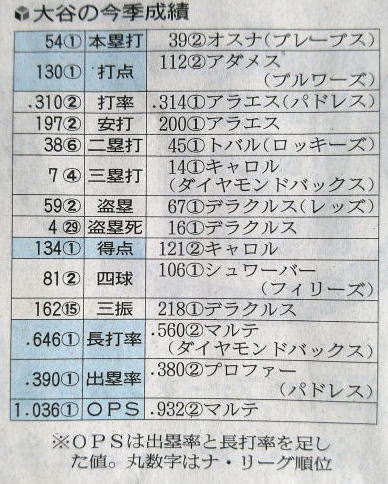 大谷の今季成績
54① 本塁打 39②オスナ(ブレーブス)
130① 打点 112②アダメス
(ブルワーズ)
.310② 打率 .314①アラエス(パドレス)
197② 安打 200①アラエス
38⑥ 二塁打 45①トバル(ロッキーズ)
7④ 三塁打 14①キャロル
(ダイヤモンドバックス)
59② 盗塁 67①デラクルス(レッズ)
4㉙ 盗塁死 16①デラクルス
134① 得点 121②キャロル
81② 四球 106①シュワーバー
(フィリーズ)
162⑮ 三振 218①デラクルス
.646① 長打率 .560②マルテ
(ダイヤモンドバックス)
.390① 出塁率 .380②プロファー
(パドレス)
1.036① OPS .932②マルテ
※OPSは出塁率と長打率を足し
た値。丸数字はナ・リーグ順位